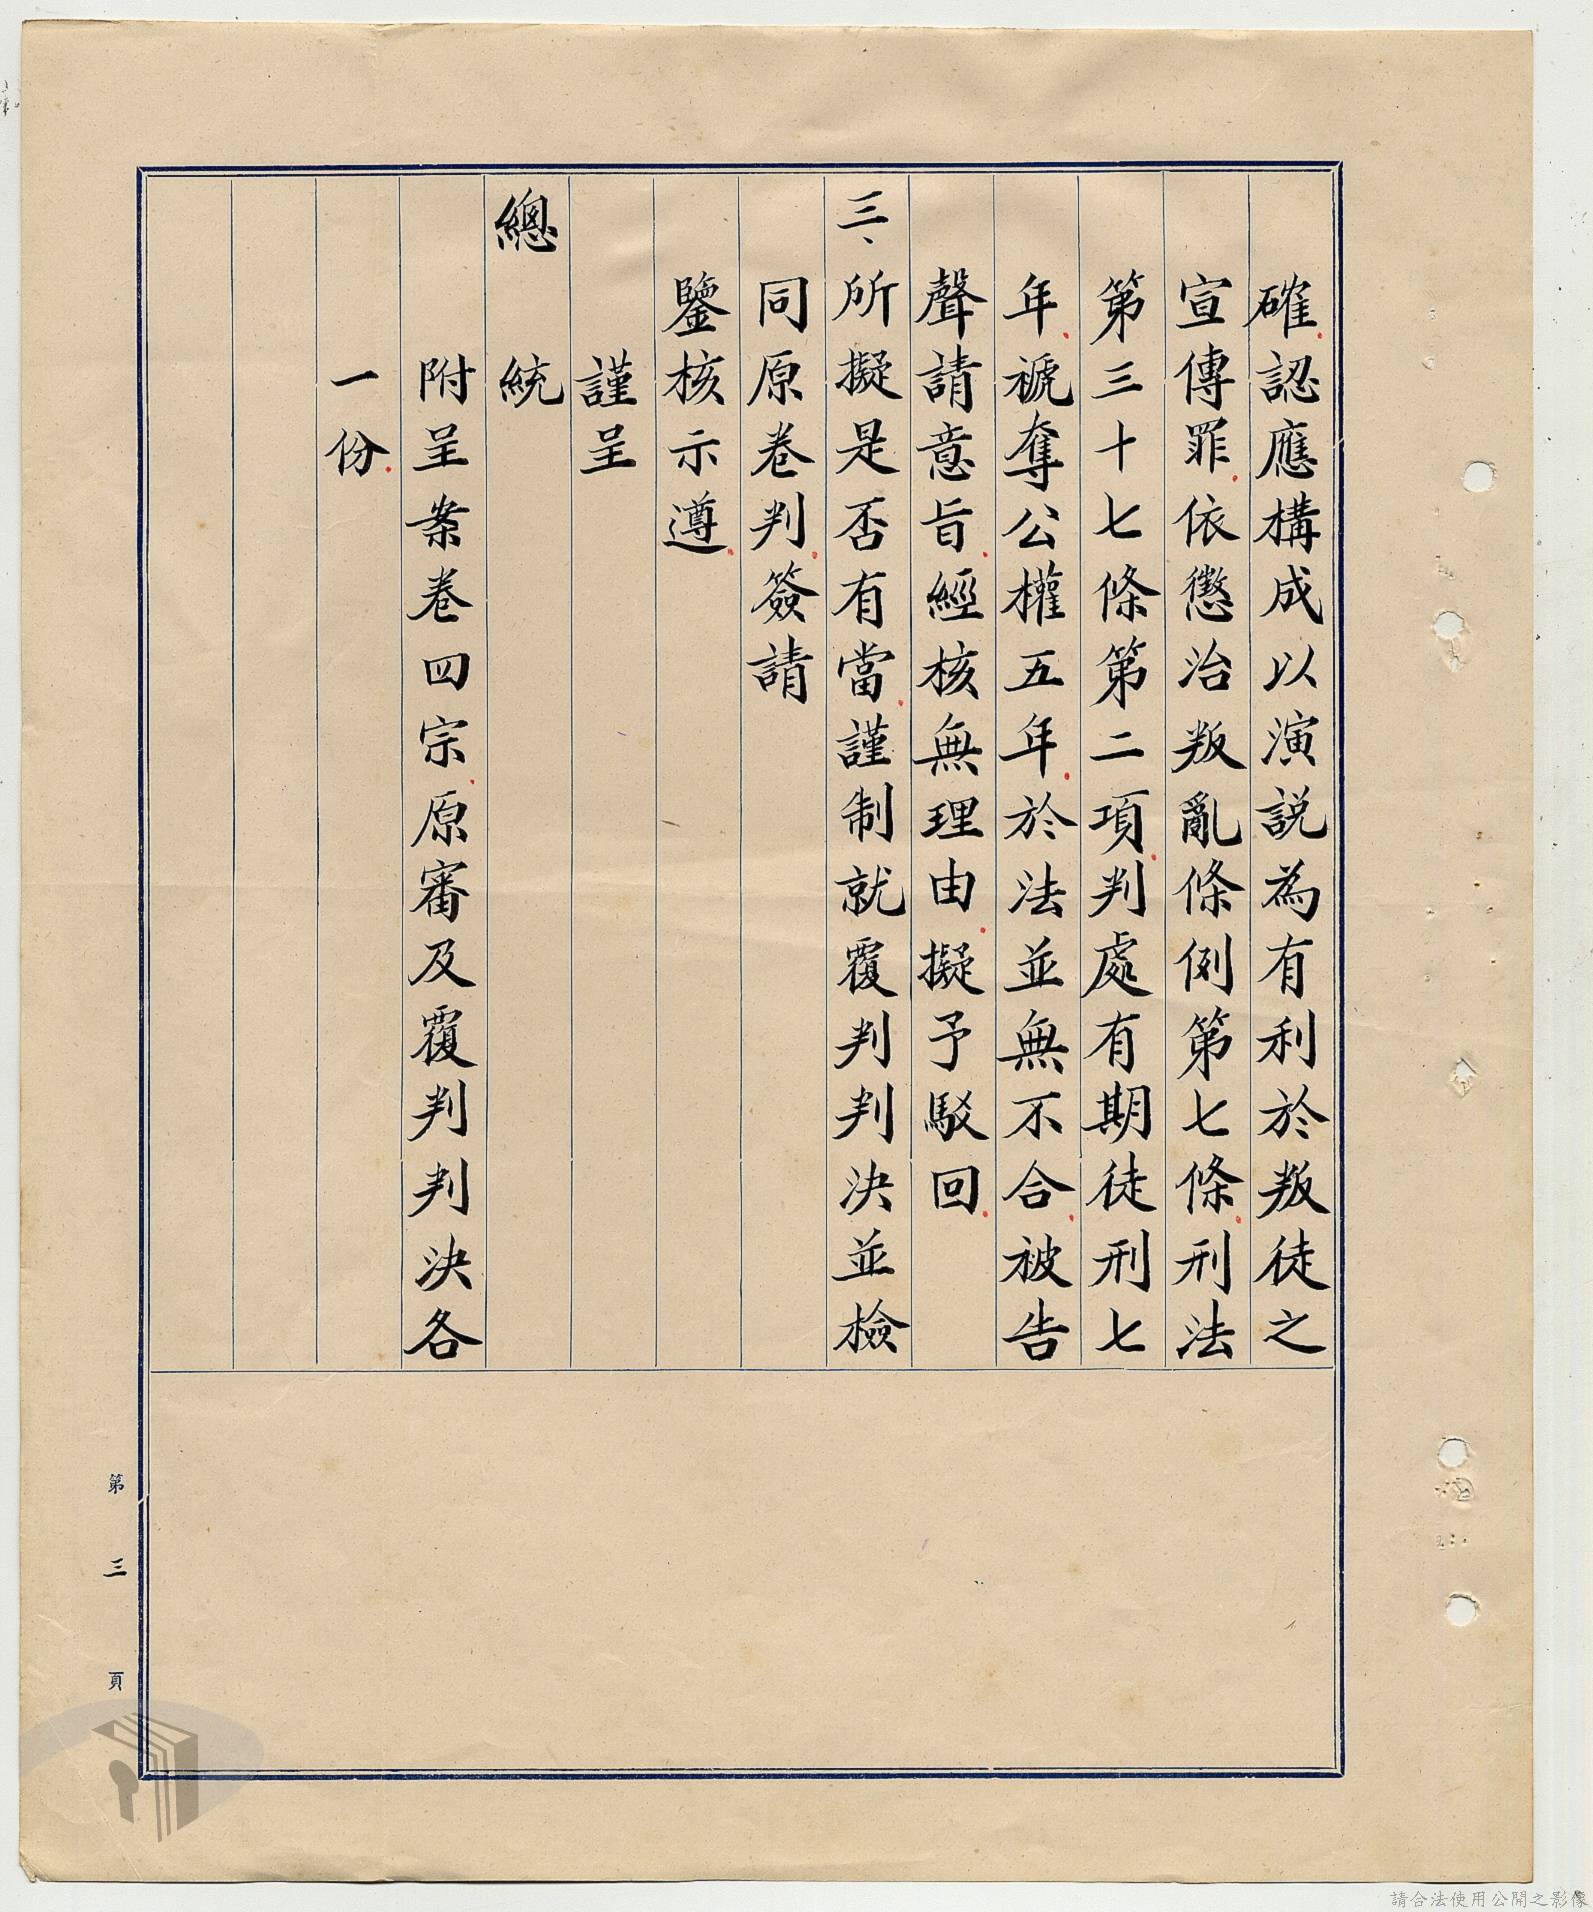 確認應構成以演説為有利於叛徒之
宣傳罪依懲治叛亂條例第七條刑法
第三十七條第二項判處有期徒刑七
年褫奪公權五年於法並無不合被告
聲請意旨經核無理由擬予駁回
三、所擬是否有當謹制就覆判判決並檢
同原卷判簽請
鑒核示遵
謹呈
總統
附呈案卷四宗原審及覆判判決各
一份
第三頁
請合法使用公開之影像